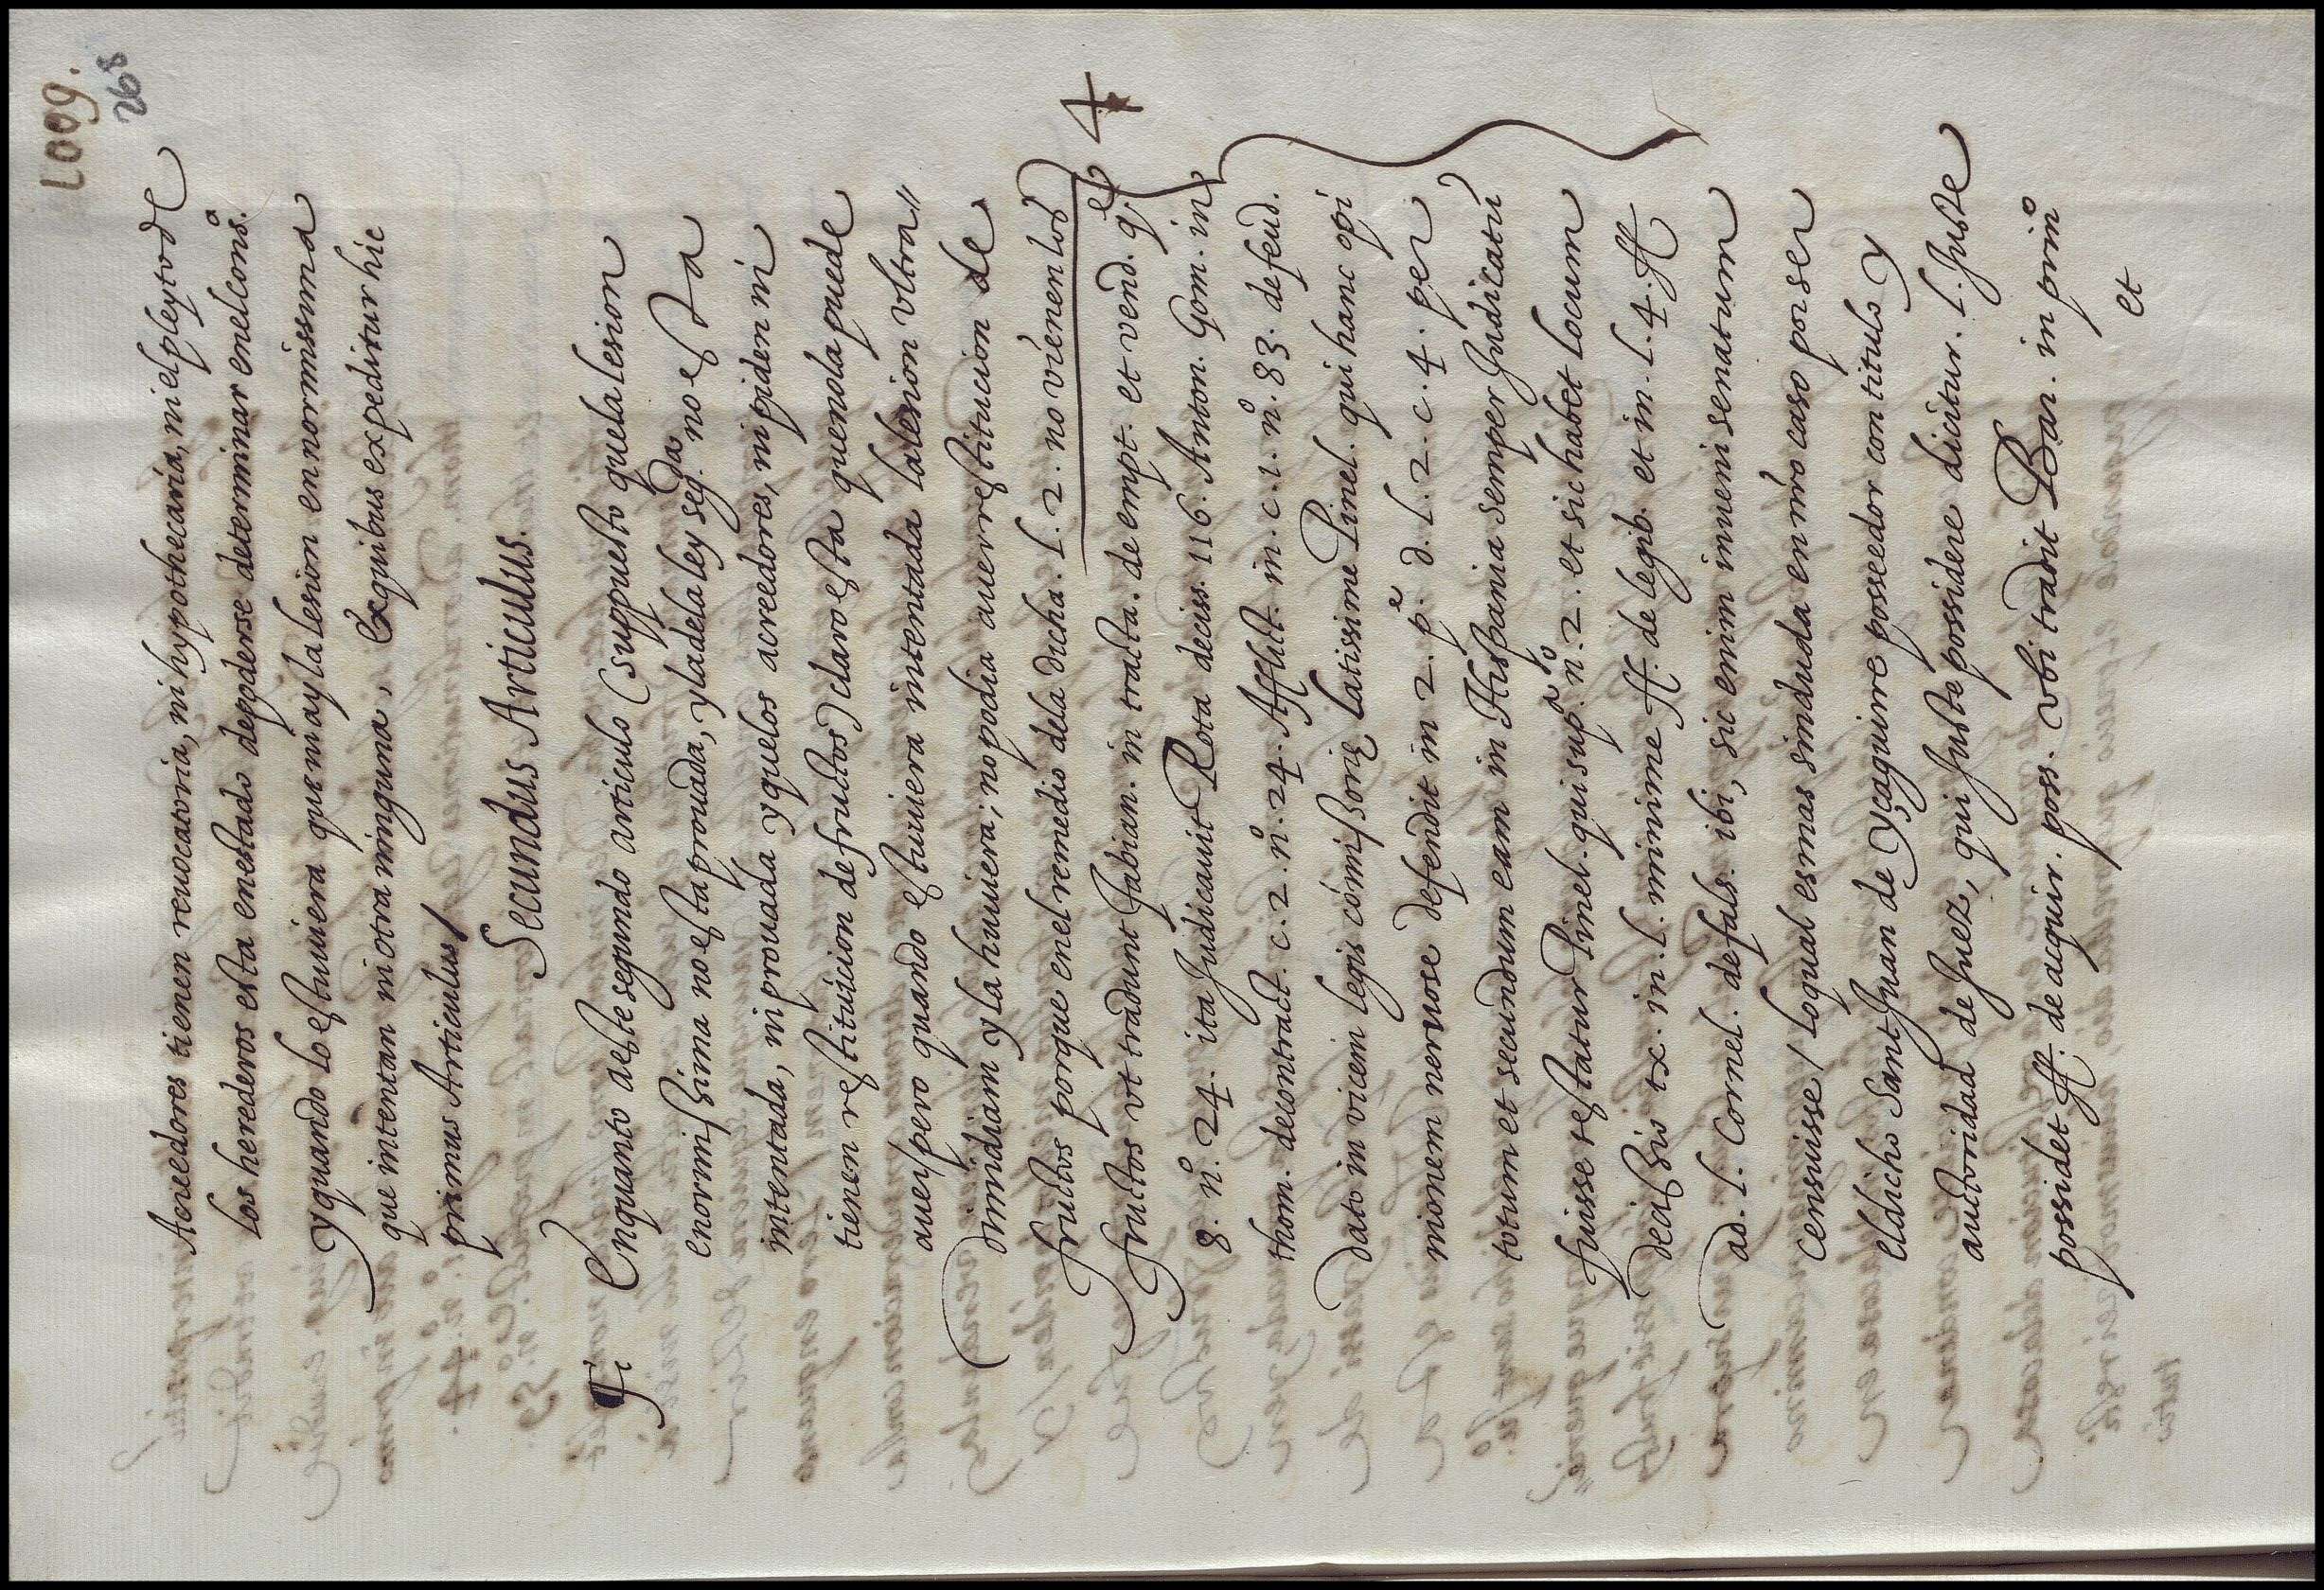 L009.
268
Acreedores tienen reuocatoria, ni hypothecaria, ni el pleyto de
los herederos esta en estado depoderse determinar enel cons.º
y quando lo estuuiera que ni ay la lesion ennormissima
que intentan ni otra ninguna, Ex quibus expeditur hic
primus Articulus/
Secundus Articulus.
En quanto aeste segundo articulo (suppuesto que la lesion
enormissima no esta prouada, y la dela ley seg.da no esta
intentada, ni prouada y que los acreedores, ni piden ni
tienen restituicion de fructos) claro esta que no la puede
auer/ pero quando estuuiera intentada la lesion vltra
dimidiam y la huuiera; no podia auer restitucion de
fructos porque enel remedio dela dicha. l. 2. no vienen los
fructos vt tradunt fabian. in tracta. de empt. et vend. q. et
8. nº. 24. ita Judicauit Rota deciss. 116. Anton. Gom. in
thom. de contract. c. 2. nº. 24. Afflict. in. c. 1. nº. 83. de feud.
dato in vicem legis comissorię latissime Pinel. qui hanc opi
nionem neruose defendit in 2. p.e d. l. 2. c. 4. per
totum et secundum eam in Hispania semper Judicatū
fuisse testatur Pinel. qui sup.a nº. 2. et sic habet locum
decissio tx. in. l. minime ff. de legib. et in. l. 4. ff
ad. l. Cornel. de fals. ibi, sic enim inueni senatum
censuisse/ lo qual es mas sin duda en nr̃o caso por ser
el dicho Sant Juan de Yçaguirre posseedor con titulo y
auctoridad de Juez, qui Juste possidere dicitur. l. Juste
possidet ff. de acquir. poss. vbi tradit Bar. in prinº
et
4